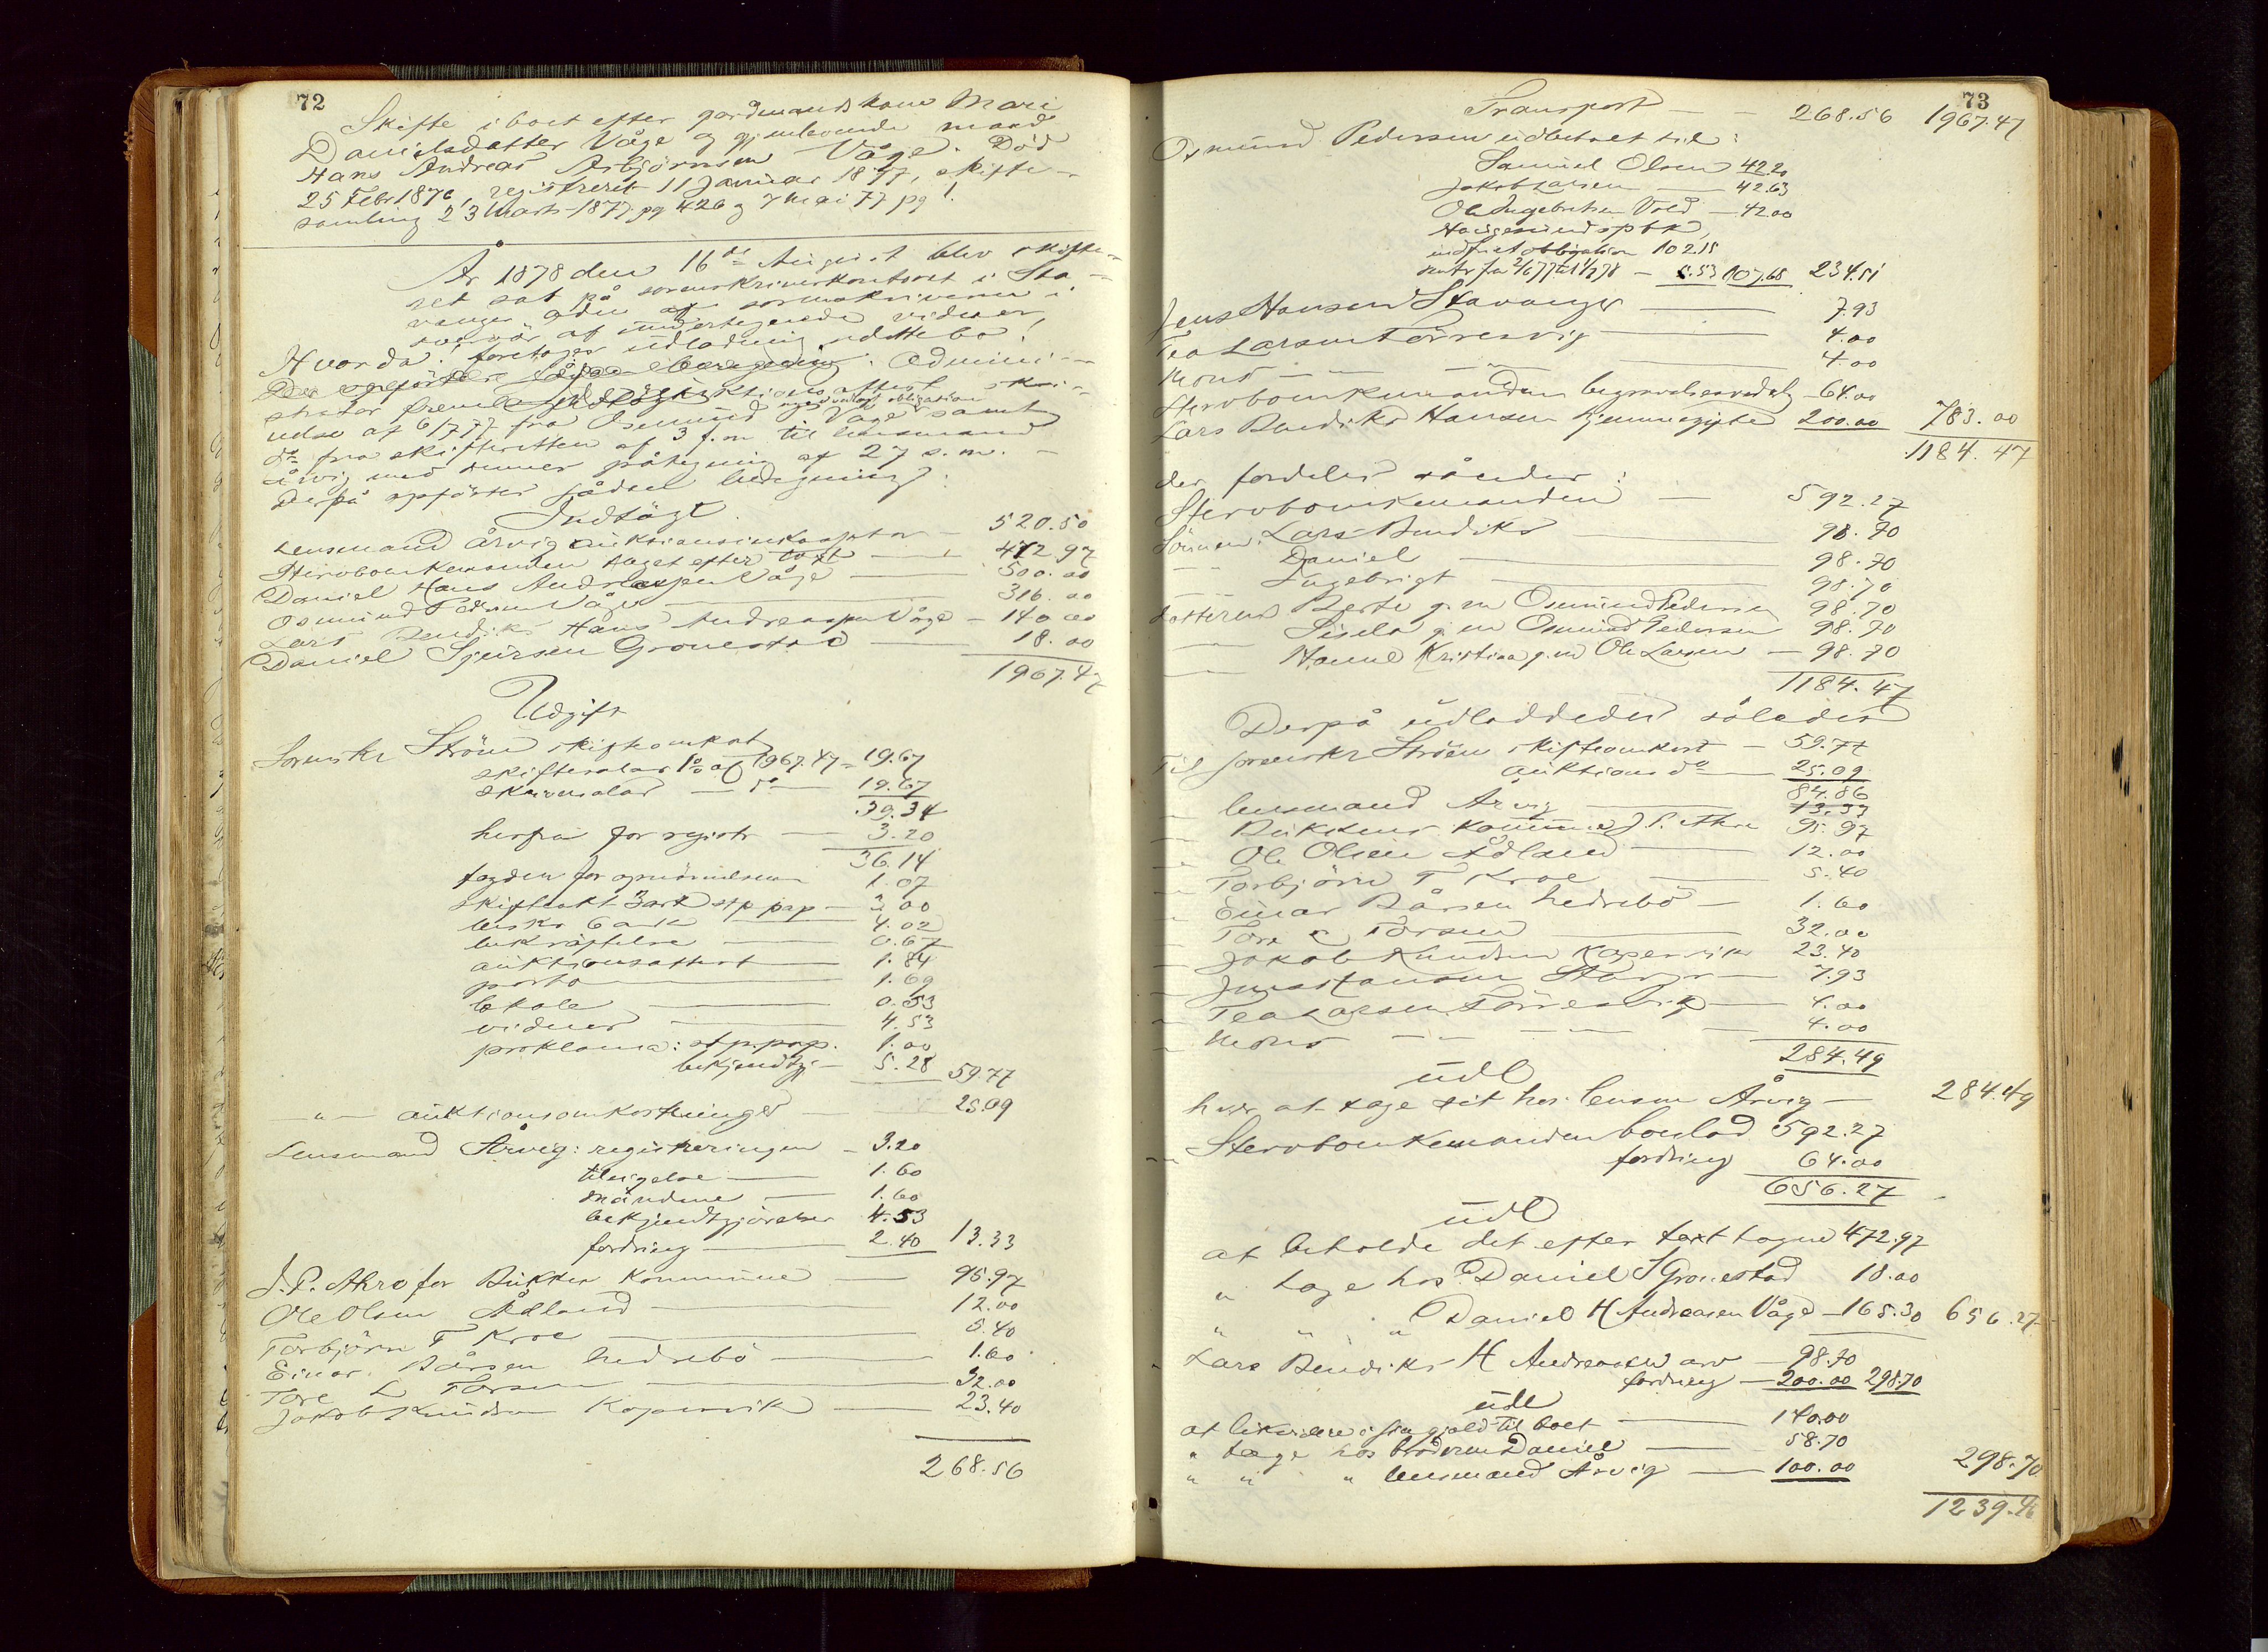 72
Skifte i boet efter gardmandskone Mari
Danielsdatter Våge og gjenlevende mand
Hans Andreas Asbjörnsen Våge. Död
25 Febr 1876, registreret 11 Januar 1877, skifte-
samling 23 Marts 1877 pg 426 og 7 Mai 77 pg 1.
År 1878 den 16de August blev skifte-
ret sat på sorenskriverkontoret i Sta-
vanger adm af sorenskriveren i
overvær af undertegnede vidner,
Hvorda! foretoges udlodning i dette bo!
Admini-
strator fremla auktions attest skri-
velse af 6/7 77 fra Osmund Våge samt
do fra skifteretten af 3 f.m. til lensmand
Årvig med sammes påtegning af 27 s.m. -
Derpå opförtes sådan beregning:
Indtägt.
Lensmand Årvig auktionsinkassator - 520.50
Stervboenkemanden taget efter taxt - 472.97
Daniel Hans Andreassen Våge - 500.00
Osmund Pedersen Våge - 316.00
Lars Bendiks Hans Andreassen Våge - 140.00
Daniel Sjursen Gronestad - 18.00
1967.47
Udgift
Sorenskr Ström skifteomkost
skiftesalar 1% af 1967.47 - 19.67
skriversalar - do - 19.67
39.34
herfra for registr - 3.20
36.14
fogden for opnävnelsen 1.07
skifteakt 3 ark st p pap - 3.00
beskr 6 ark - 4.02
bekräftelse - 0.67
auktionsattest - 1.84
porto - 1.69
lokale - 0.53
vidner - 4.53
proklama: st p. pap. 1.00
bekjendtg - 5.28 59.77
" - auktionsomkostninger - 25.09
Lensmand Årvig: registreringen - 3.20
tilsigelse - 1.60
mändene - 1.60
bekjendtgjörelser 4.53
fordring - 2.40 13.33
J. P. Ahro for Bukken Kommune - 95.97
Ole Olsen Ådland - 12.00
Torbjörn T Kroe - 5.40
Einar Bårsen hedrebö - 1.60
Tore L Torsen - 32.00
Jakob Knudsen Kopervik - 23.40
268.56
73
Transport - - 268.56 1967.47
Osmund Pedersen udbetalt til:
Samuel Olsen 42.20
Jakob Larsen - 42.63
Ole Ingebretsen Vold - 42.00
Haugesunds spbk,
indfriet obligation 102.15
rente fra 2/6 77 til 1/7 78 - 5.53 107.68 234.51
Jens Hansen Stavanger - 7.93
Tea Larsen Törresvig - 4.00
Mons - " - " - 4.00
Stervboenkemanden begravelsesudlg - 64.00
Lars Bendiks Hansen hjemmegifte 200.00 783.00
1184.47
der fordeles således:
Stervboenkemanden - 592.27
Sönnen: Lars Bendiks - 98.70
Daniel - 98.70
Ingebrigt - 98.70
datteren Berte g. m Osmund Pedersen 98.70
Sisela g. m Osmund Pedersen 98.70
Hanne Kristina g. m Ole Larsen - 98.70
1184.47
Derpå udloddedes således
Til sorenskr Ström skifteomkost - 59.77
auktions do - 25.09
84.86
" lensmand Årvig - 13.33
" Bukkens kommune J. P. Ahro 95.97
" Ole Olsen Ådland - 12.00
" Torbjörn T Kroe - 5.40
" Einar Bårsen hedrebö - 1.60
" Tore L Torsen - 32.00
" Jakob Knudsen Kopervik 23.40
" Jens Hansen Stavgr - 7.93
" Tea Larsen Törresvik - 4.00
" Mons - " - " - 4.00
284.49
udl
at tage sit hos lensm Årvig - 284.49
" Stervboenkemanden boeslod 592.27
fordring 64.00
656.27
udl
at beholde det efter taxt tagne 472.97
" tage hos Daniel S Gronestad 18.00
" " " Daniel H Andreasen Våge - 165.30 656.27
" Lars Bendiks H Andreasen arv - 98.70
fordring - 200.00 298.70
udl
at likvidere i sin gjeld til boet - 140.00
" tage hos broderen Daniel - 58.70
" " " lensmand Årvig - 100.00 298.70
1239.46